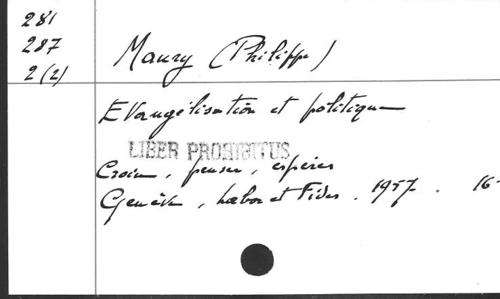 281
287
2(2)
Maury (Philippe)
Evangélisation et politique
LIBER PROHIBITUS
Croire, penser, espérer
Genève, Labor et Fides. 1957. 16-